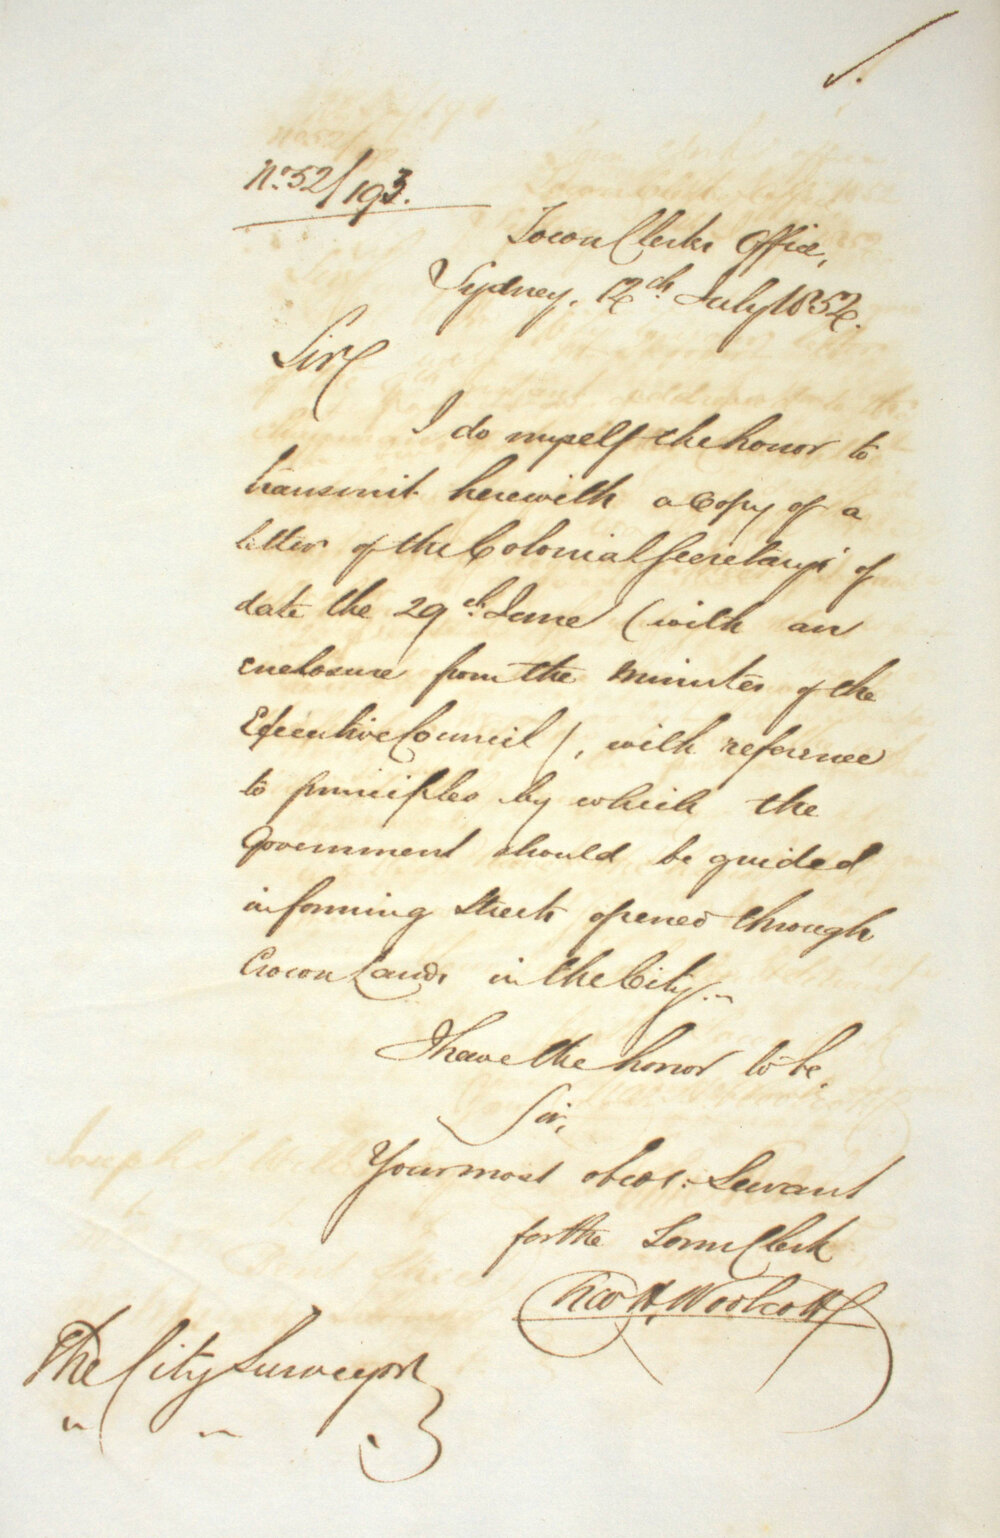 No. 52/193.
Town Clerks Office,
Sydney, 12th July 1852.
Sir
I do myself the honor to
transmit herewith a Copy of a
letter of the Colonial Secretary's of
date the 29th June (with an
enclosure from the minutes of the
Executive Council), with reference
to principles by which the
Government should be guided
in forming Streets opened through
Crown Lands in the City.
I have the honor to be,
Sir,
Your most obedt: Servant
for the Town Clerk
Woolcott
The City Surveyor